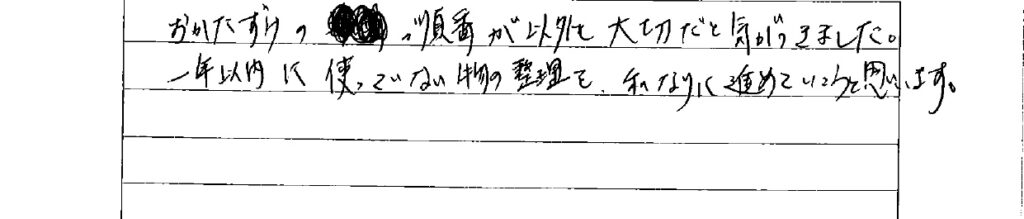 おかたずけの 順番が以外と大切だと気がつきました。
一年以内に使っていない物の整理を、私なりに進めていこうと思います。